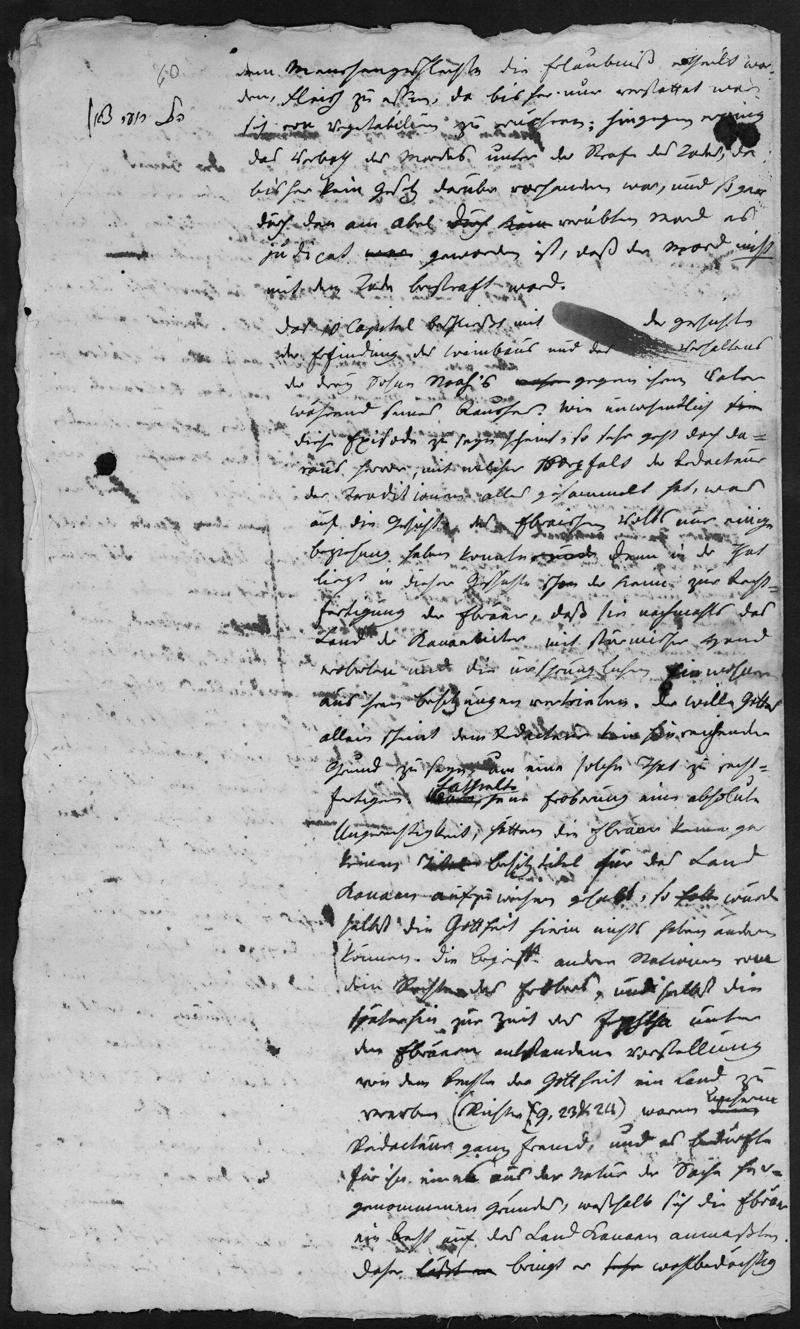 60
dem Menschengeschlechte die Erlaubniß ertheilt wor-
den, Fleisch zu essen, da bisher nur verstattet war
sich von Vegetabilien zu nähren; hingegen erging
das Verboth des Mordes unter der Strafe des Todes, da
bisher kein Gesetz darüber vorhanden war, und sogar
durch den am Abel verübten Mord es
judicat geworden ist, daß der Mord nicht
mit dem Tode bestraft ward.
Das Capitel beschließt mit der Geschichte
der Erfindung des Weinbaus und des Verhaltens
der drey Söhne Noah's gegen ihren Vater
während seines Rausches. Wie unwesentlich
diese Episode zu seyn scheint, so sehr geht doch da-
raus hervor, mit welcher Sorgfalt der Redacteur
der Traditionen alles gesammelt hat, was
auf die Geschichte des Ebräischen Volks nur einige
Beziehung haben konnte. Denn in der That
liegt in dieser Geschichte schon der Keim zur Recht-
fertigung der Ebräer, daß sie nachmahls das
Land der Kanaaniter mit stürmischer Hand
eroberten und die ursprünglichen Einwohner
aus ihren Besitzungen vertrieben. Der Wille Gottes
allein scheint dem Redacteur kein hinreichender
Grund zu seyn, um eine solche That zu recht-
fertigen. Enthielte jene Eroberung eine absolute
Ungerechtigkeit, hätten die Ebräer gar
keinen Besitztitel für das Land
Kanaan aufzuweisen gehabt, so würde
selbst die Gottheit hierin nichts haben ändern
können. Die Begriffe anderer Nationen von
dem Rechte des Eroberers, und selbst die
späterhin zur Zeit des Jephtha unter
den Ebräern entstandene Vorstellung
von dem Rechte der Gottheit ein Land zu
(Richter 23 & 24) waren unserm
Redacteur ganz fremd, und es bedurfte
für ihn eines aus der Natur der Sache her-
genommenen Grundes, weshalb sich die Ebräer
ein Recht auf das Land Kanaan anmaßten.
Daher bringt er wohlbedächtig